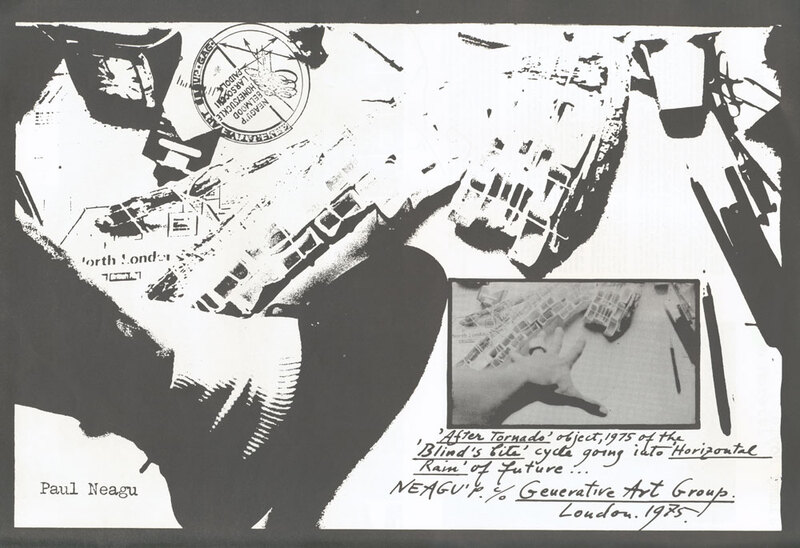 GENERATIVE ART GROUP · GAG
NEAGU'P
BELMOOD
HONEYSUCKLE
LARSOCCHI
orth London
North London
'After Tornado' object, 1975 of the
'Blind's bite' cycle going into 'Horizontal
Rain' of future ...
NEAGU'P. c/o Generative Art Group.
London. 1975.
Paul Neagu